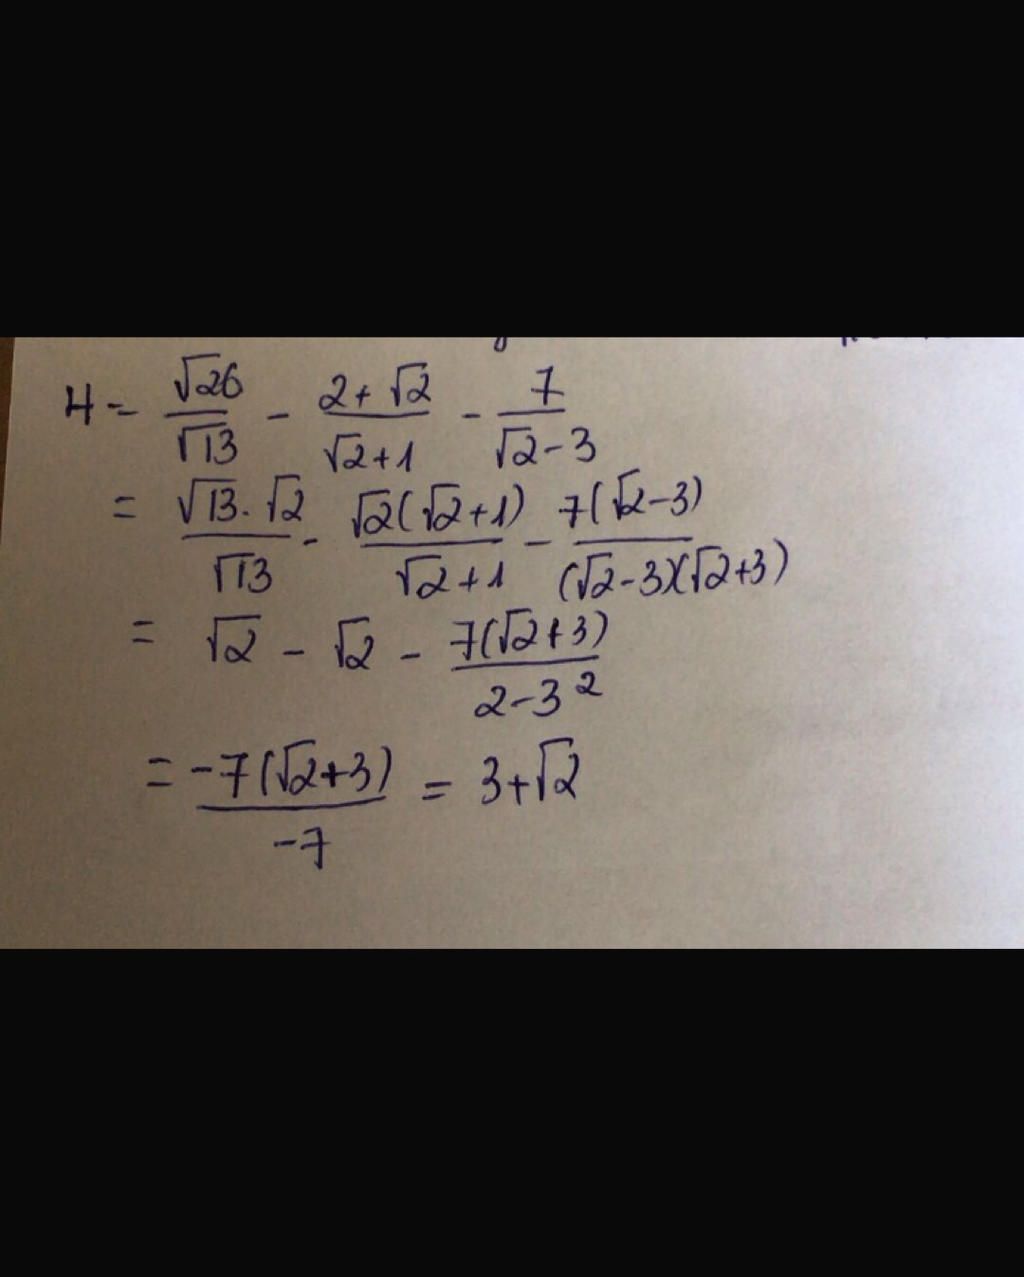 H = √26/√13 - (2+√2)/(√2+1) - 7/(√2-3)
= (√13.√2)/√13 - √2(√2+1)/(√2+1) - 7(√2-3)/((√2-3)(√2+3))
= √2 - √2 - 7(√2+3)/(2-3²)
= -7(√2+3)/(-7) = 3+√2